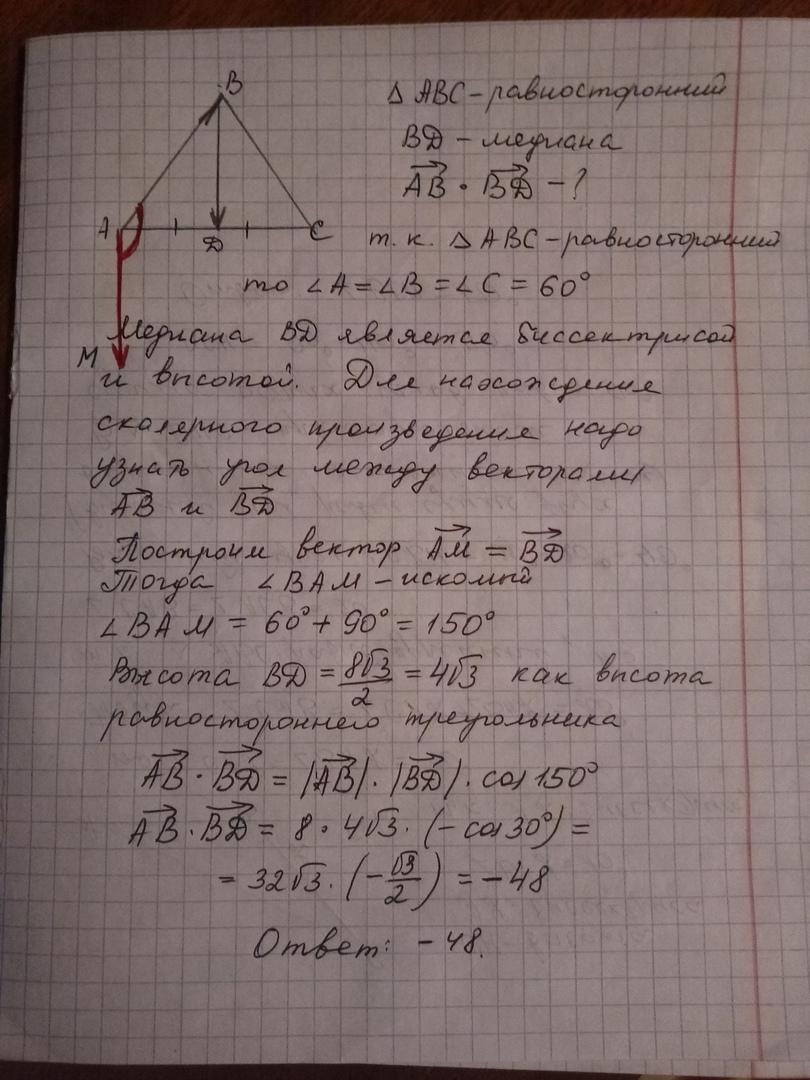 B
Δ ABC - равносторонний
BD - медиана
AB · BD - ?
A
D
C
т. к. Δ ABC - равносторонний
то ∠A = ∠B = ∠C = 60°
Медиана BD является биссектрисой
M
и высотой. Для нахождения
скалярного произведения надо
узнать угол между векторами
AB и BD
Построим вектор AM = BD
Тогда ∠BAM - искомый
∠BAM = 60° + 90° = 150°
Высота BD = 8√3/2 = 4√3 как высота
равностороннего треугольника
AB · BD = |AB| · |BD| · cos 150°
AB · BD = 8 · 4√3 · (- cos 30°) =
= 32√3 · (-√3/2) = - 48
Ответ: - 48.